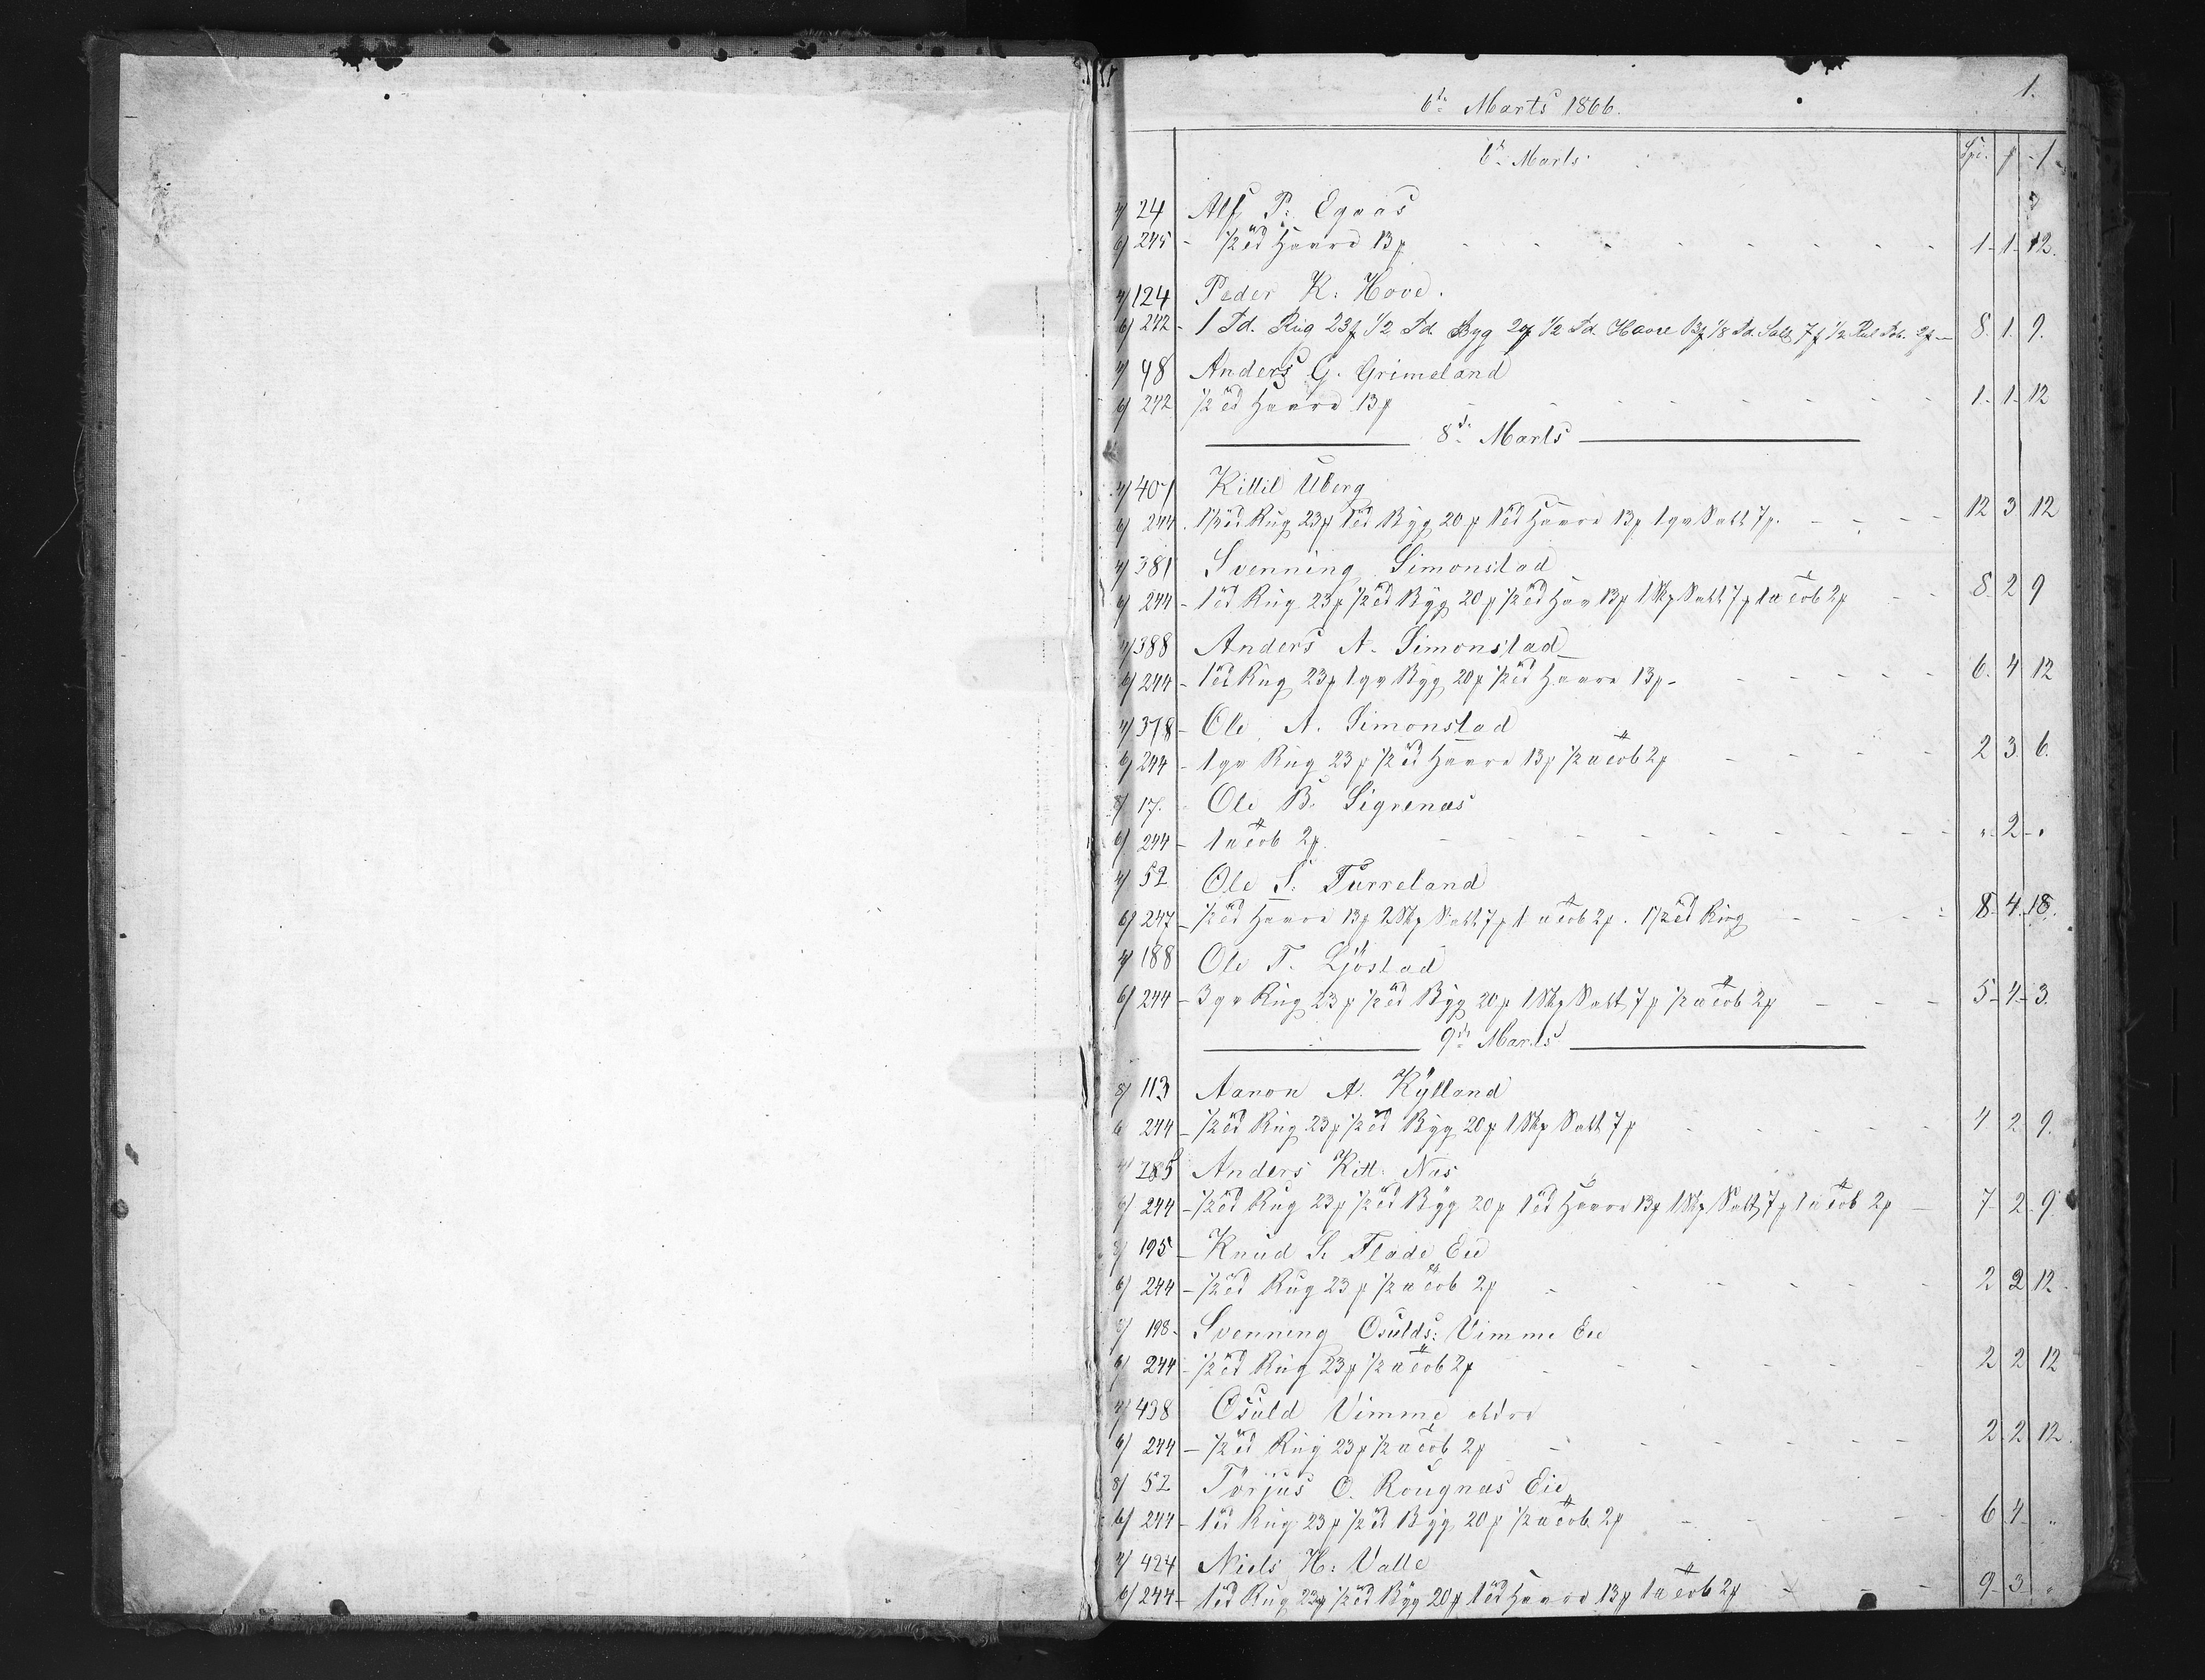 1.
6te Marts 1866.
6te Marts Spd.
4/ 24 Alf P. Egaas
6/ 245 - 1/2 Td Havre 13 - 1 - 1 - 12.
4/ 124 Peder K. Hove.
6/ 242 - 1 Td. Rug 23 1/2 Td Byg 1/2 Td Havre 13 1/8 Td. Salt 7 1/2 8. 1. 9.
4/ 48 Anders G. Grimeland
6/ 242 1/2 Td Havre 13 - 1 - 1 - 12
8de Marts
4/ 407 Kittil Uberg
6/ 244 1 1/2 Td Rug 23 1 Td Byg 20 1 Td Havre 13 Salt 7 12 3 12
4/ 381 Svenning Simonstad
6/ 244 - 1 Td Rug 23 1/2 Td Byg 20 1/2 Td Hav 13 1 Skp Salt 7 Tob 2 8 2 9
4/ 388 Anders A. Simonstad
6/ 244 - 1 Td Rug 23 Byg 20 1/2 Td Havre 13 - 6. 4 12
4/ 378 - Ole A. Simonstad
6/ 244 - Rug 23 1/2 Td Havre 13 Tob 2 2 3. 6.
8/ 17. Ole B. Signenæs
6/ 244 - Tob 2 " - 2 - "
4/ 52 Ole S. Turreland
6/ 247 - 1/2 Td Havre 13 2 Skp Salt 7 Tob 2. 1 1/2 Td Rug 8 - 4 . 18.
4/ 188 Ole T. Ljöstad
6/ 244 - Rug 23 1/2 Td Byg 20 1 Skp Salt 7 Tob 2 5 - 4 - 3.
9de Marts
8/ 113 Aanon A. Kylland
6 244 - 1/2 Td Rug 23 1/2 Td Byg 20 1 Skp Salt 7 4 2 9.
4/ 285 Anders Kitt. Nes
6/ 244 - 1/2 Td Rug 23 1/2 Td Byg 20 1 Td Havre 13 1 Skp Salt 7 Tob 2 7 - 2 - 9
8/ 195 - Knud S. Flade Eie
6/ 244 - 1/2 Td Rug 23 Tob 2 2 2 12
8/ 198 - Svenning Osulds: Vimme Eie
6/ 244 - 1/2 Td Rug 23 Tob 2 2 2 12
4/ 438 Osuld Vimme
6/ 244 - 1/2 Td Rug 23 Tob 2 2 2 12.
8/ 52 Torjus O. Rougnæs Eie
6/ 244 - 1 Td Rug 23 1/2 Td Byg 20 Tob 2 6 4 - "
4/ 424 Niels H: Valle
6/ 244 - 1 Td Rug 23 1/2 Td Byg 20 1 Td Havre 13 Tob 2 9 - 3 "